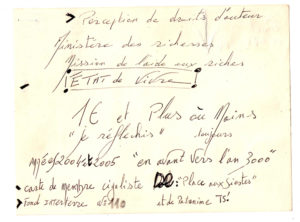 Perception de droits d'auteur
Ministère des richesses
Mission de l'aide aux riches
ÉTAT de Vivre
1€ et Plus ou Moins
"je réfléchis" toujours
2004 2005 "en avant vers l'an 3000"
carte de membre cigaliste DO: "Place aux Siestes"
fond interterre n° 110 et de Palanine 75